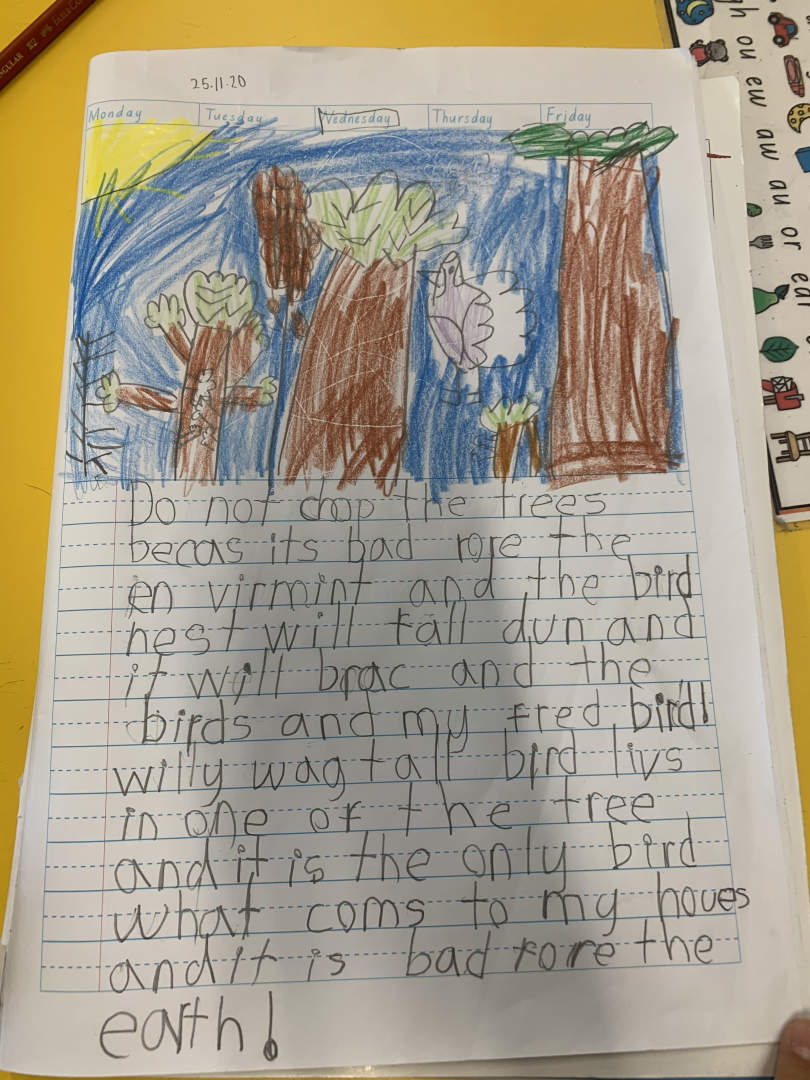 25.11.20
Monday Tuesday Wednesday Thursday Friday
Do not chop the trees
becas its bad fore the
en virmint and the bird
nest will fall dun and
it will brac and the
birds and my fred bird!
willy wag tall bird livs
in one of the tree
and it is the only bird
what coms to my houes
and it is bad fore the
earth!
ou ew aw au or ear